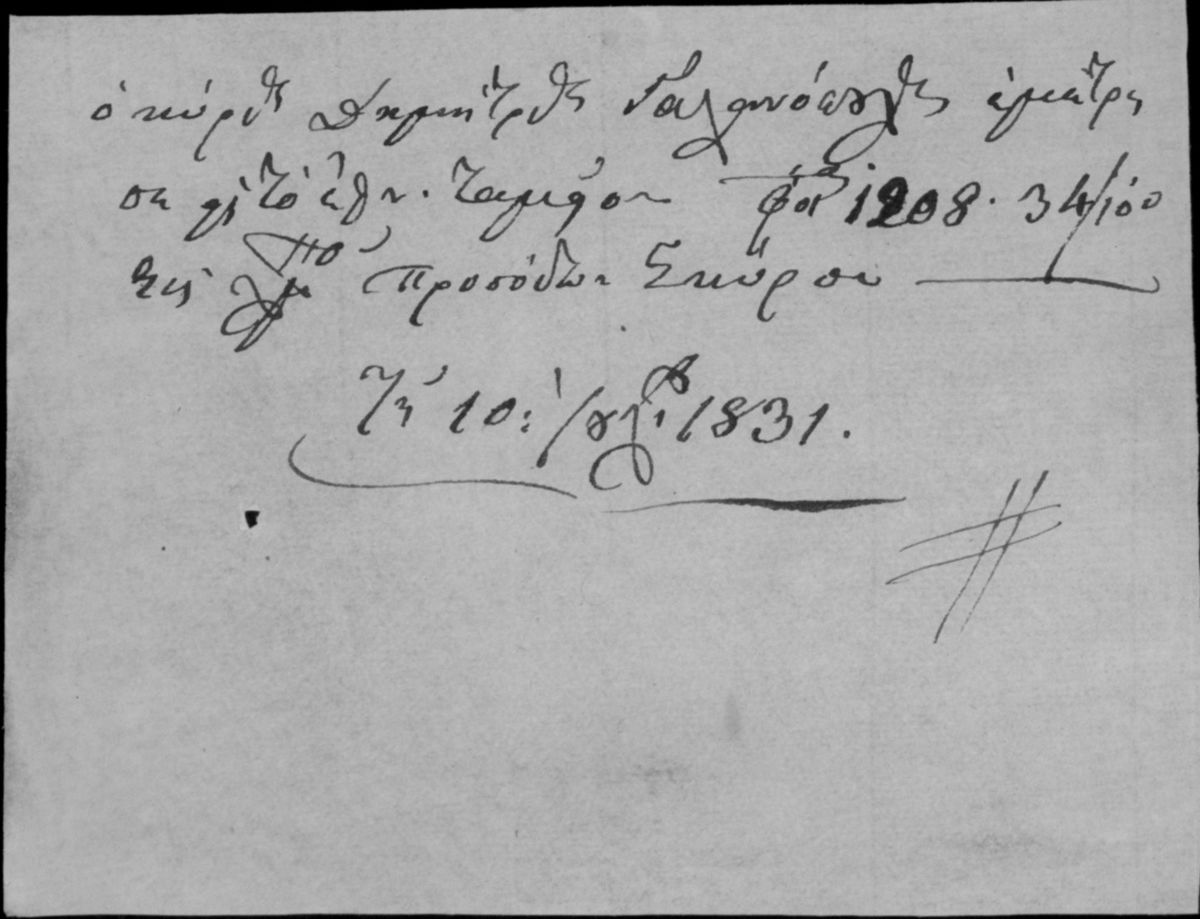 ὁ κύριος Δημήτριος Γαλανόπουλος ἐμέτρη
σε εἰς τὸ ἐθν. ταμεῖον φοί 1208. 34/100
διὰ λ/μ προσόδων Σκύρου
Τῇ 10: Ἰουλίου 1831.